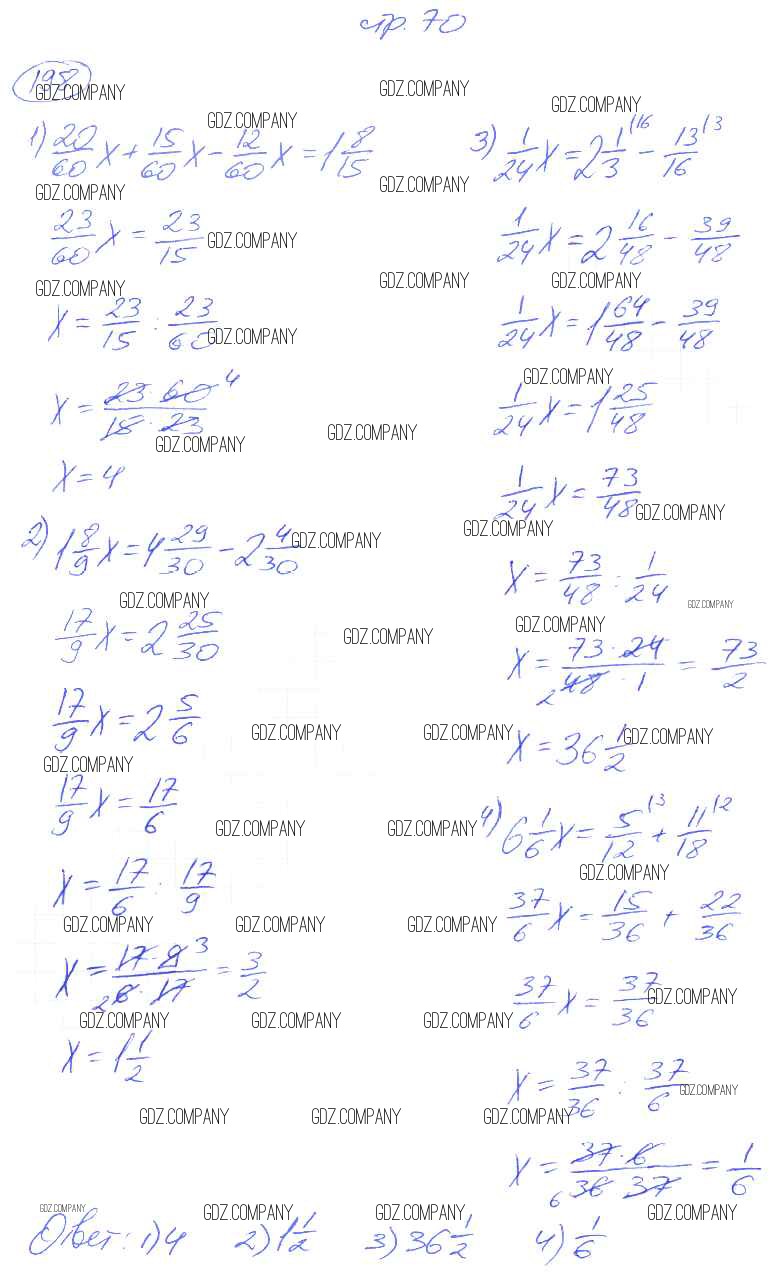 стр. 70
198
1) 20/60 x + 15/60 x - 12/60 x = 1 8/15
23/60 x = 23/15
x = 23/15 : 23/60
x = 23·60 4 / 15·23
x = 4
2) 1 8/9 x = 4 29/30 - 2 4/30
17/9 x = 2 25/30
17/9 x = 2 5/6
17/9 x = 17/6
x = 17/6 : 17/9
x = 17·9 3 / 2 6·17 = 3/2
x = 1 1/2
3) 1/24 x = 2 1/3 |16 - 13/16 |3
1/24 x = 2 16/48 - 39/48
1/24 x = 1 64/48 - 39/48
1/24 x = 1 25/48
1/24 x = 73/48
x = 73/48 : 1/24
x = 73·24 / 2 48·1 = 73/2
x = 36 1/2
4) 6 1/6 x = 5/12 |3 + 11/18 |2
37/6 x = 15/36 + 22/36
37/6 x = 37/36
x = 37/36 : 37/6
x = 37·6 / 6 36 37 = 1/6
Ответ: 1) 4 2) 1 1/2 3) 36 1/2 4) 1/6
GDZ.COMPANY